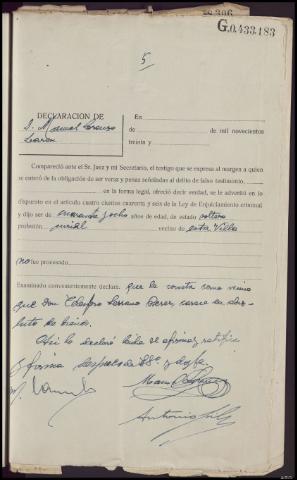 G.0.433.183
5
DECLARACION DE
D. Manuel Lorenzo
En
de de mil novecientos
treinta y
Compareció ante el Sr. Juez y mi Secretario, el testigo que se expresa al margen a quien
se enteró de la obligación de ser veraz y penas señaladas al delito de falso testimonio.
en la forma legal, ofreció decir verdad, se le advertió en lo
dispuesto en el artículo cuatro cientos cuarenta y seis de la Ley de Enjuiciamiento criminal
y dijo ser de cuarenta y ocho años de edad, de estado soltero
profesión vecino de esta Villa
no fue procesado
Examinado convenientemente declara: que le consta como vecino
que Don Serrano Perez, carece en abso-
luto de bienes.
Así lo declaró leída se afirma y ratifica
y firma despues de S.Sª y doy fe.
Antonio